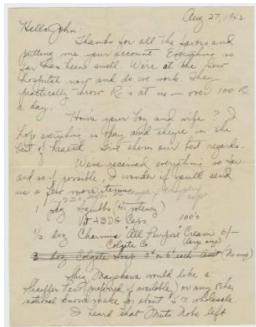 Aug 27, 1952
Hello John,
Thanks for all the favors and
putting me your account. Everything so
far has been swell. We're at the new
hospital now and do we work. They
practically throw Rx's at us — over 100 Rx
a day.
How's your boy and wife? I
hope everything is okay and they're in the
best of health. Give them our best regards.
We've received everything so far
and so if possible, I wonder if you'll send
us a few more items
1 Squibb
100's
1/2 doz Charmis "All Purpose" Cream
Colgate Co (any size)
3 doz Colgate
Mrs. would like a
Sheaffer Pen (preferred if available) or any other
national known make for about wholesale
I heard that left